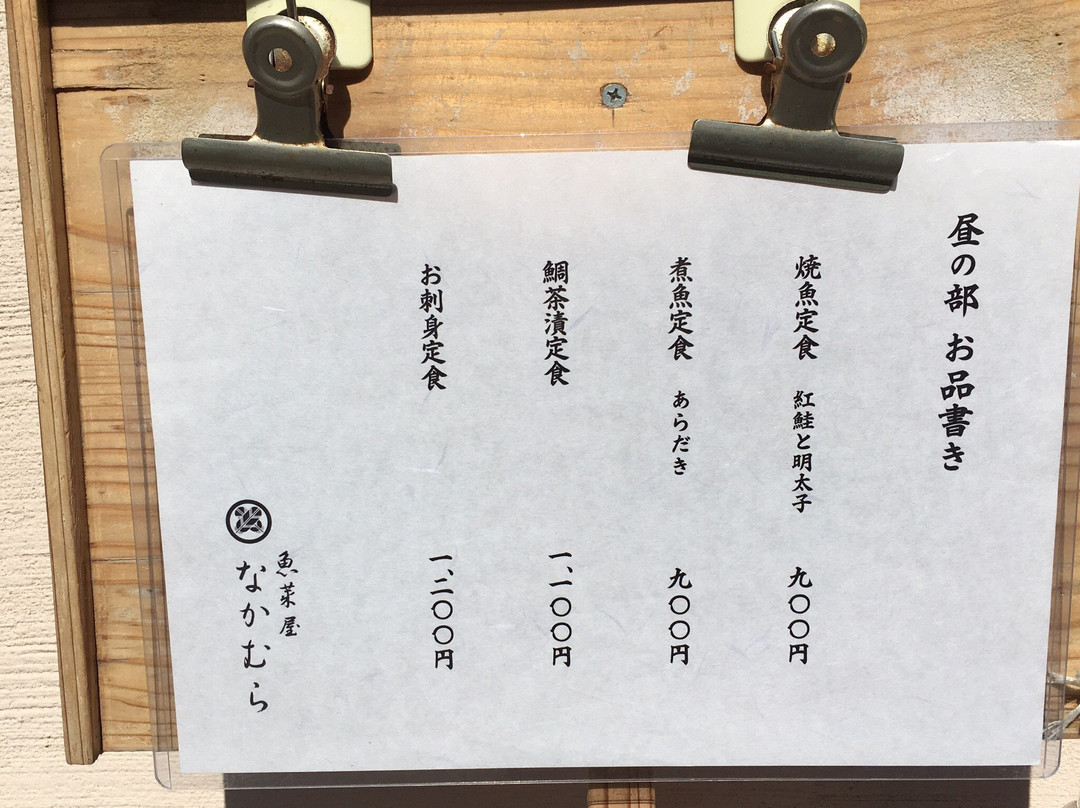 昼の部 お品書き
焼魚定食 紅鮭と明太子 九〇〇円
煮魚定食 あらだき 九〇〇円
鯛茶漬定食 一、一〇〇円
お刺身定食 一、二〇〇円
魚菜屋
なかむら